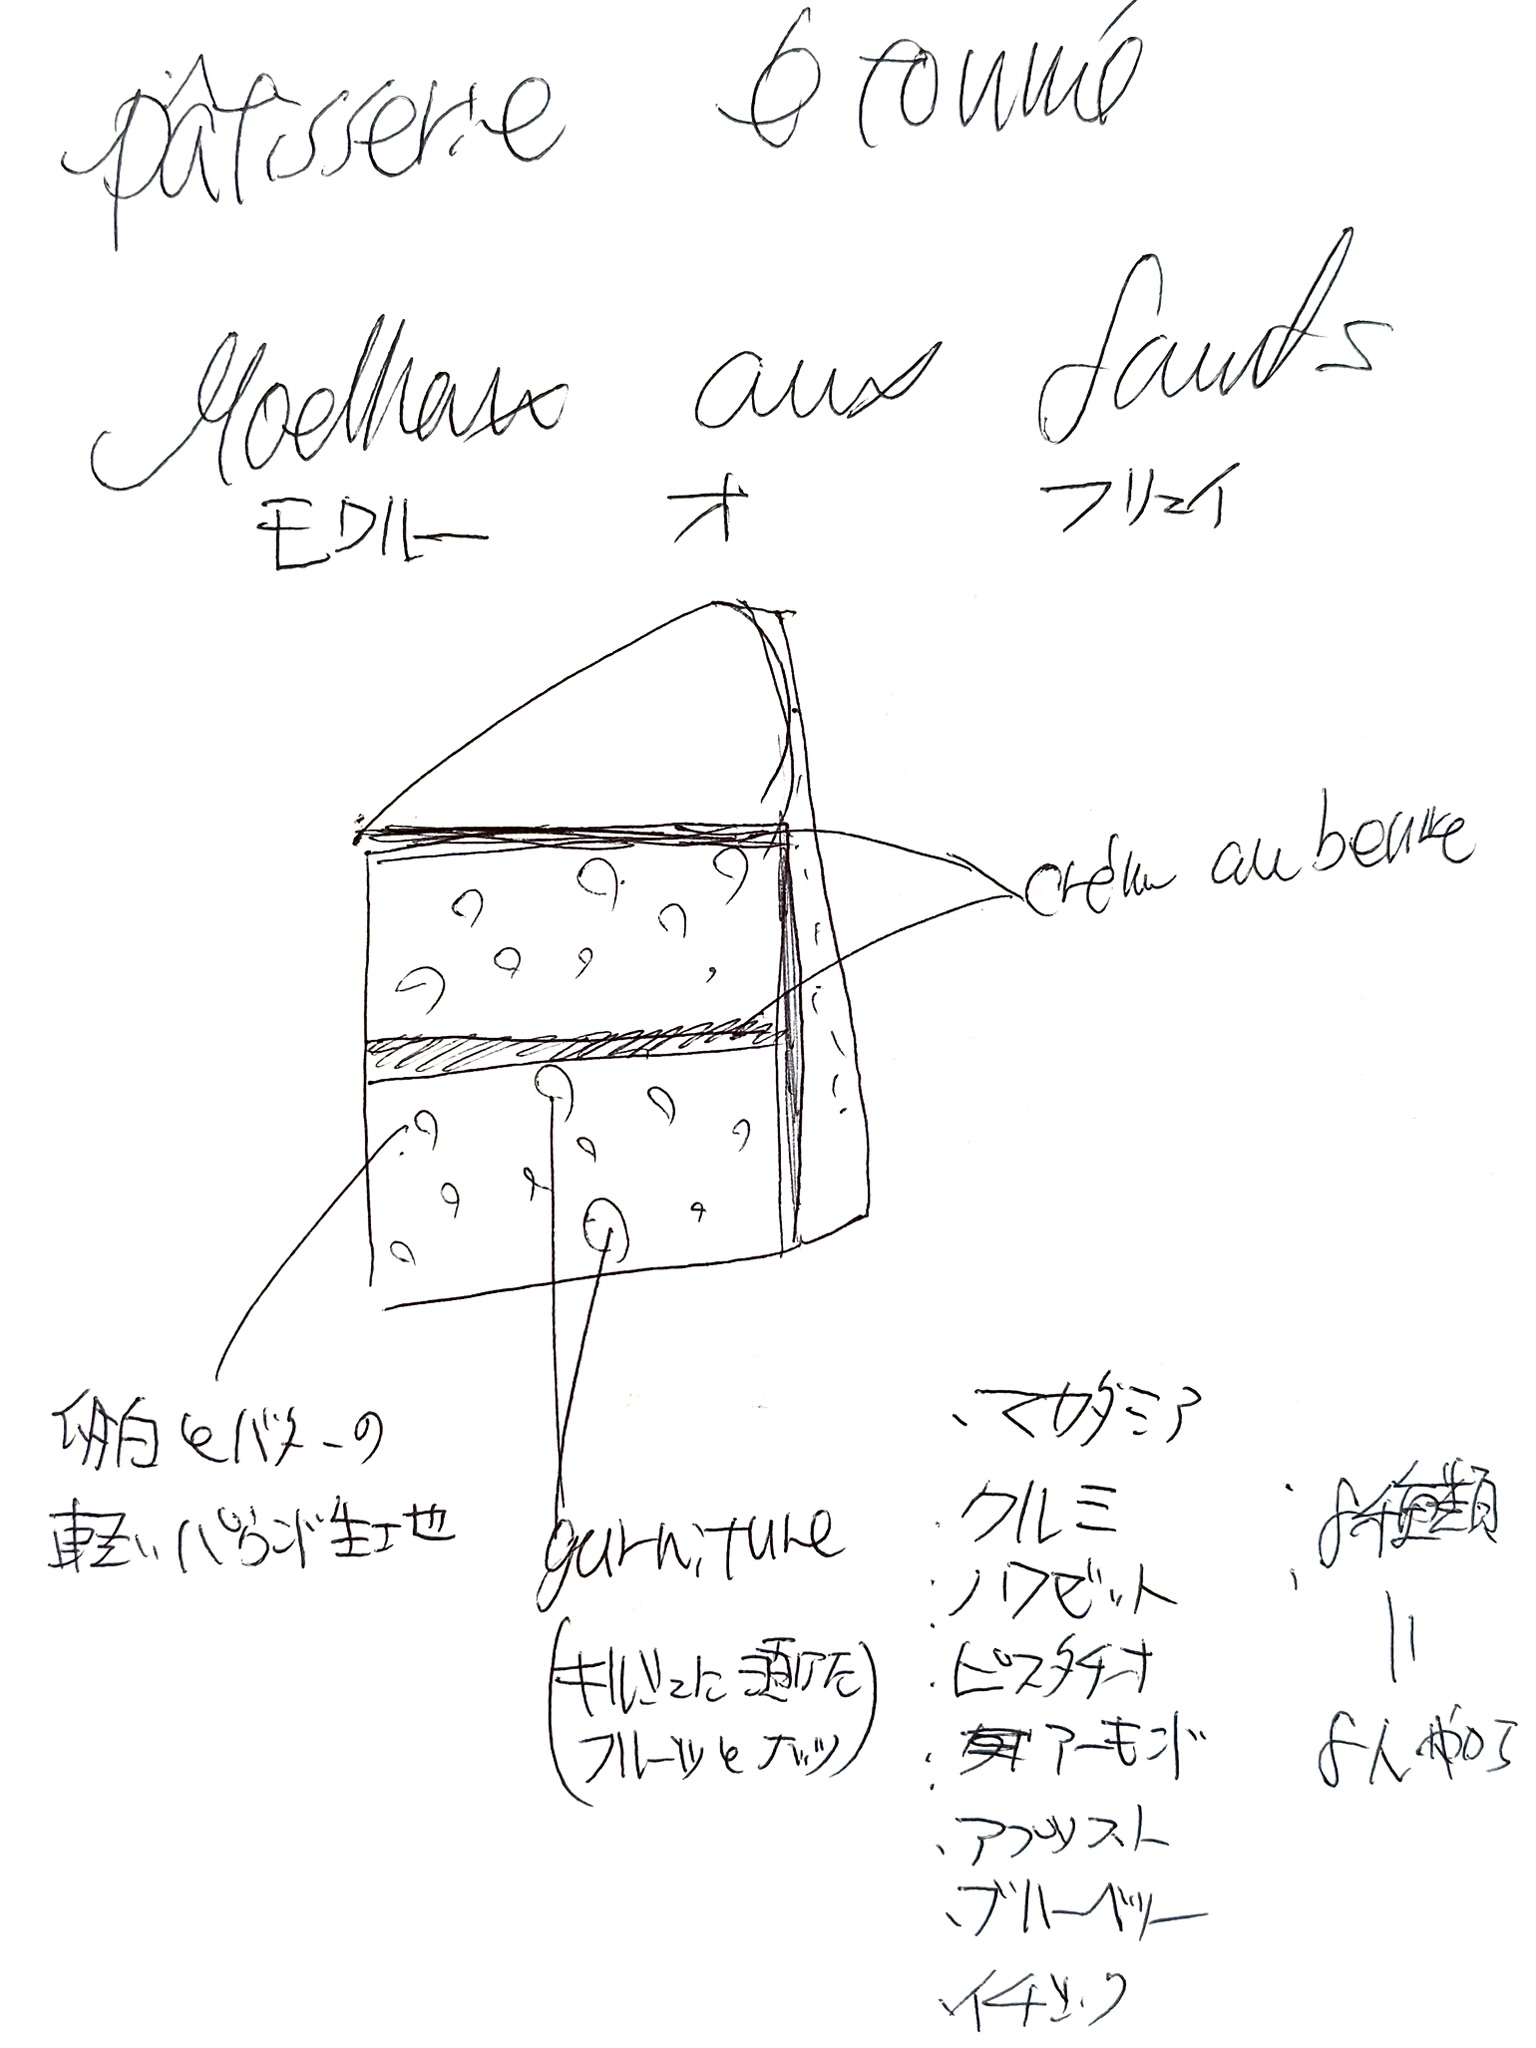 pâtisserie étonné
Moelleux aux fruits
モワルー オ フリュイ
crème au beurre
卵白とバターの
軽いパウンド生地
garniture
(キルシュに漬けた
フルーツとナッツ)
・マカダミア
・クルミ
・ノワゼット
・ピスタチオ
・アーモンド
・アプリコット
・ブルーベリー
・イチジク
8種類
||